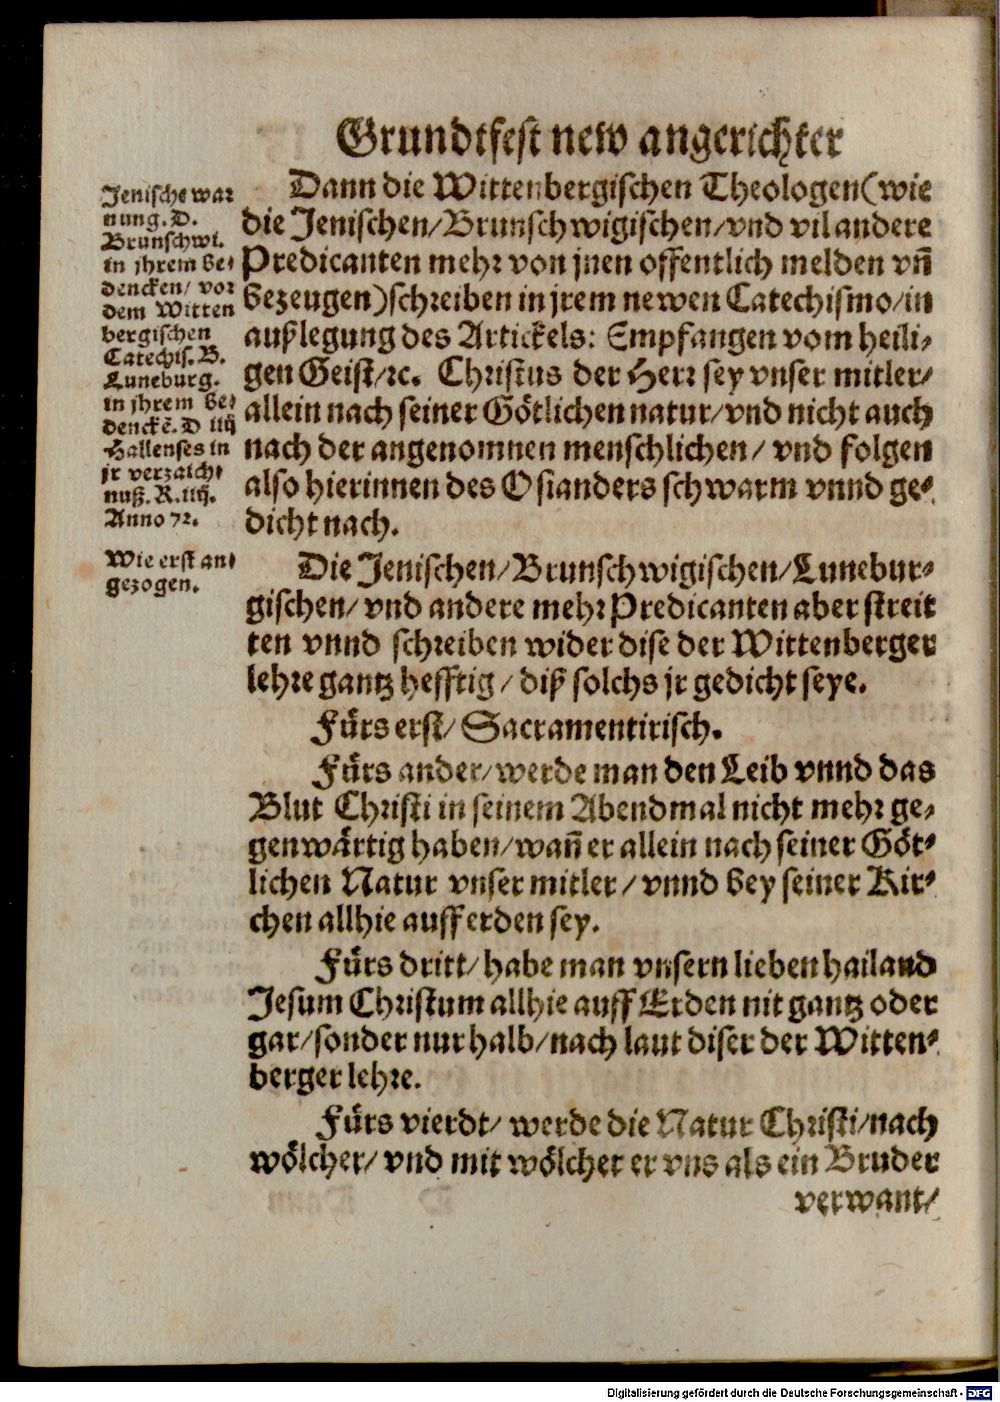 Grundtfest new angerichter
Jenische war
nung. D.
Brunschwi.
in jhrem be⸗
dencken/ vor
dem Witten
bergischen
Catechis. B.
Luneburg.
in jhrem be⸗
denckẽ. D iiij
Hallenses in
jr verzaich⸗
nuß. R. iiij.
Anno 72.
Wie erst an⸗
gezogen.
Dann die Wittenbergischen Theologen (wie
die Jenischen/ Brunschwigischen/ vnd vil andere
Predicanten mehr von jnen offentlich melden vñ
bezeugen) schreiben in jrem newen Catechismo/ in
außlegung des Artickels: Empfangen vom heili⸗
gen Geist/ ꝛc. Christus der Herr sey vnser mitler/
allein nach seiner Götlichen natur/ vnd nicht auch
nach der angenomnen menschlichen/ vnd folgen
also hierinnen des Osianders schwarm vnnd ge⸗
dicht nach.
Die Jenischen/ Brunschwigischen/ Lunebur⸗
gischen/ vnd andere mehr Predicanten aber streit
ten vnnd schreiben wider dise der Wittenberger
lehre gantz hefftig/ diß solchs jr gedicht seye.
Fürs erst/ Sacramentirisch.
Fürs ander/ werde man den Leib vnnd das
Blut Christi in seinem Abendmal nicht mehr ge⸗
genwärtig haben/ wañ er allein nach seiner Göt⸗
lichen Natur vnser mitler/ vnnd bey seiner Kir⸗
chen allhie auff erden sey.
Fürs dritt/ habe man vnsern lieben hailand
Jesum Christum allhie auff Erden nit gantz oder
gar/ sonder nur halb/ nach laut diser der Witten⸗
berger lehre.
Fürs vierdt/ werde die Natur Christi/ nach
wölcher/ vnd mit wölcher er vns als ein Bruder
verwant/
Digitalisierung gefördert durch die Deutsche Forschungsgemeinschaft - DFG